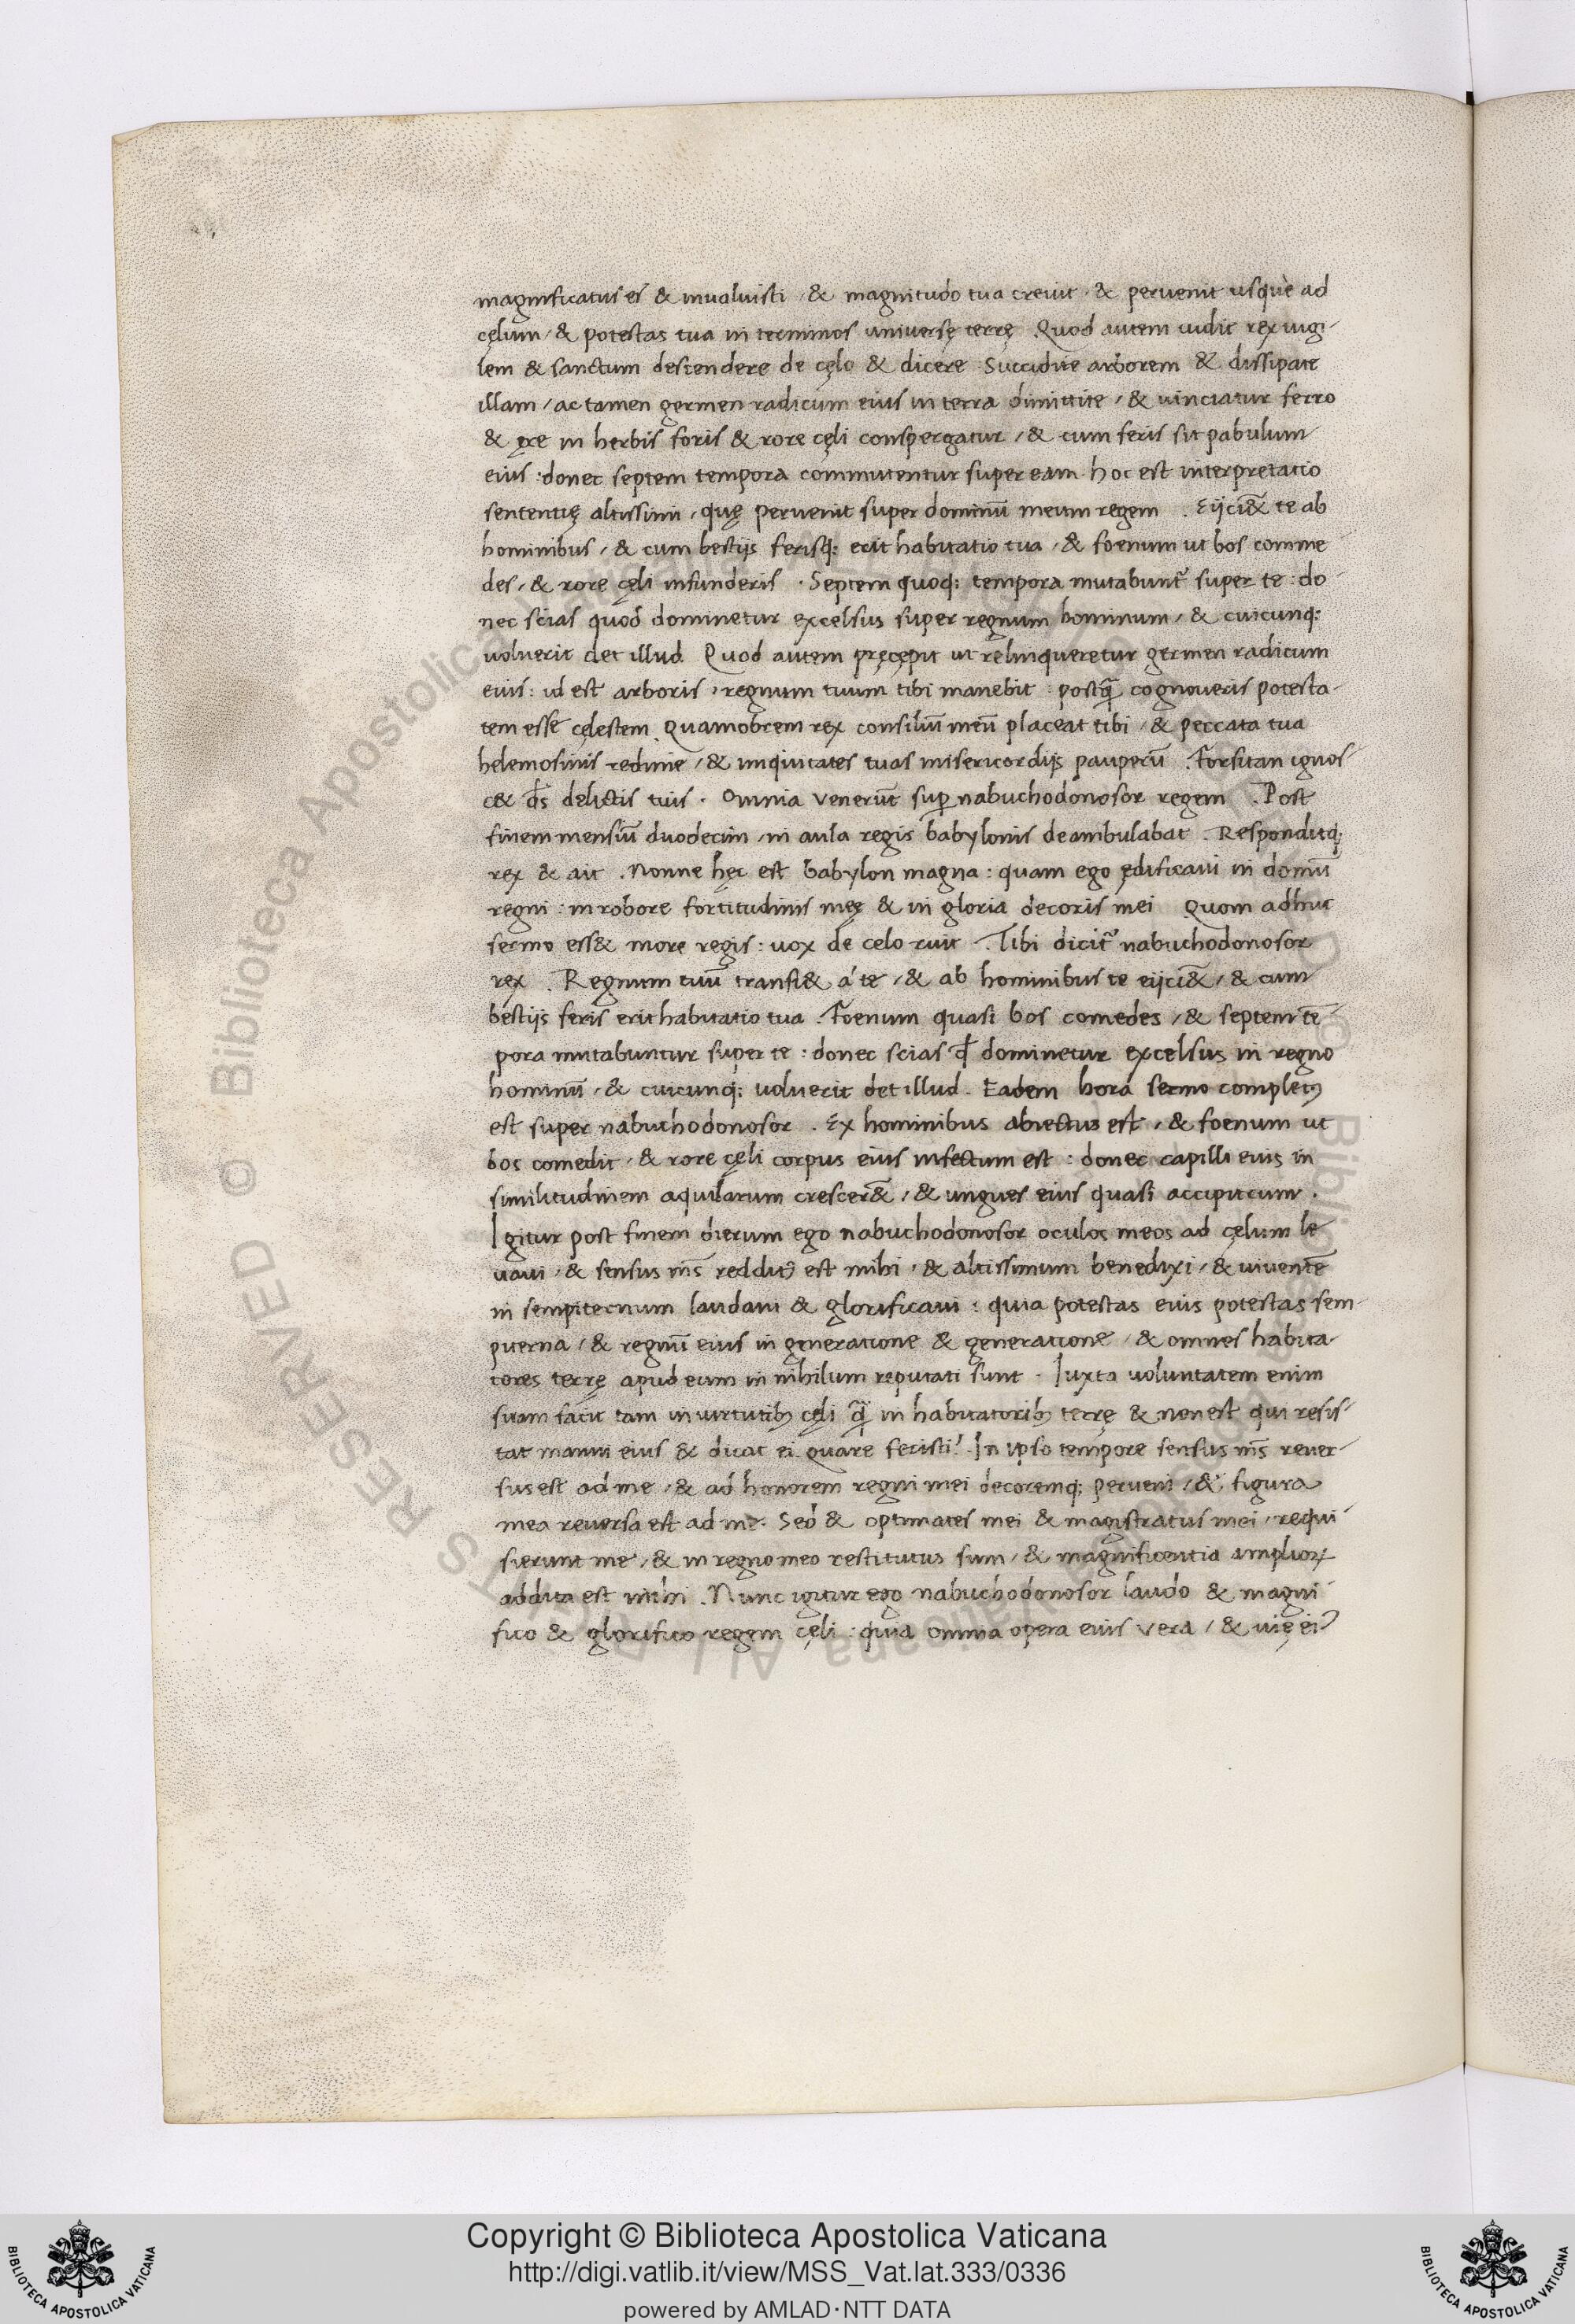 magnificatus es & inualuisti / & magnitudo tua creuit / & peruenit usque ad
cęlum / & potestas tua in terminos universę terrę . Quod autem uidit rex uigi-
lem & sanctum descendere de cęlo & dicere Succidite arborem & dissipate
illam / ac tamen germen radicum eius in terra dimittite / & uinciatur ferro
& ęre in herbis foris & rore cęli conspergatur / & cum feris sit pabulum
eius : donec septem tempora commutentur super eam . hoc est interpretatio
sententię altissimi / quę peruenit super dominū meum regem . Eijci&̄ te ab
hominibus / & cum bestijs ferisq; erit habitatio tua / & foenum ut bos comme
des / & rore cęli infunderis . Septem quoq; tempora mutabunt᷑ super te : do
nec scias quod dominetur excelsus super regnum hominum / & cuicunq;
uoluerit det illud Quod autem pręcępit ut relinqueretur germen radicum
eius : id est arboris / regnum tuum tibi manebit : postq̄ cognoueris potesta-
tem esse cęlestem . Quamobrem rex consiliū meū placeat tibi / & peccata tua
helemosinis redime / & iniquitates tuas misericordijs pauperū . Forsitan ignos
c& d̄s delictis tuis . Omnia venerūt sup̄ nabuchodonosor regem . Post
finem mensiū duodecim / in aula regis babylonis deambulabat . Responditq;
rex & ait . Nonne hęc est babylon magna : quam ego ędificaui in domū
regni : in robore fortitudinis meę & in gloria decoris mei Quom adhuc
sermo ess& in ore regis : uox de celo ruit . Tibi dicit᷑ nabuchodonosor
rex . Regnum tuū transi& á te / & ab hominibus te eijci&̄ / & cum
bestijs feris erit habitatio tua . Foenum quasi bos comedes / & septem tē
pora mutabuntur super te : donec scias qd̄ dominetur excelsus in regno
hominū / & cuicunq; uoluerit det illud . Eadem hora sermo completꝰ
est super nabuchodonosor . Ex hominibus abiectus est / & foenum ut
bos comedit / & rore cęli corpus eius infectum est : donec capilli eius in
similitudinem aquilarum crescer&̄ / & ungues eius quasi accipitrum .
Igitur post finem dierum ego nabuchodonosor oculos meos ad cęlum le
uaui / & sensus ms̄ redditꝰ est mihi / & altissimum benedixi / & uiuentē
in sempiternum laudaui & glorificaui : quia potestas eius potestas sem-
piterna / & regnū eius in generatione & generatione / & omnes habita-
tores terrę apud eum in nihilum reputati sunt . Iuxta uoluntatem enim
suam facit tam in uirtutibꝰ cęli q̄ in habitatoribꝰ terrę & non est qui resis-
tat manui eius & dicat ei quare fecisti? In ipso tempore sensus ms̄ reuer-
sus est ad me / & ad honorem regni mei decoremq; perueni / & figura
mea reuersa est ad me . Sed & optimates mei & magistratus mei / requi
sierunt me / & in regno meo restitutus sum / & magnificentia amplior
addita est mihi . Nunc igitur ego nabuchodonosor laudo & magni
fico & glorifico regem cęli : quia omnia opera eius vera / & uię eiꝰ
Copyright © Biblioteca Apostolica Vaticana
http://digi.vatlib.it/view/MSS_Vat.lat.333/0336
powered by AMLAD·NTT DATA